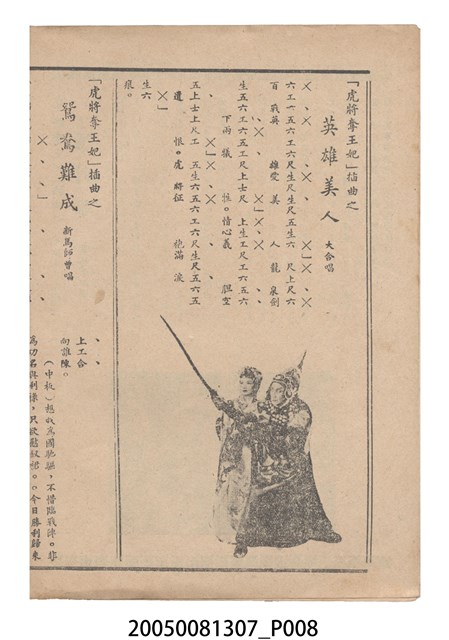 「虎將奪王妃」插曲之
英雄美人 大合唱
六工一五六工六尺生尺生尺五生六 尺上尺六
百戰英 雄愛 美 人 龍泉劍
生五六工六五工尺上士尺 上生工尺工五六
下兩犧 牲。情心義 胆空
五上士上尺工 五生六五六工六尺生尺五六五
遺 恨。虎將征 袍滿淚
生六
痕。
「虎將奪王妃」插曲之
鴛鴦難成 新馬師曾唱
上工合
向誰陳。
（中板）想我為國馳驅，不惜臨戰陣。非
為功名與利祿，只欲慰釵裙。。今日勝利歸來
20050081307_P008